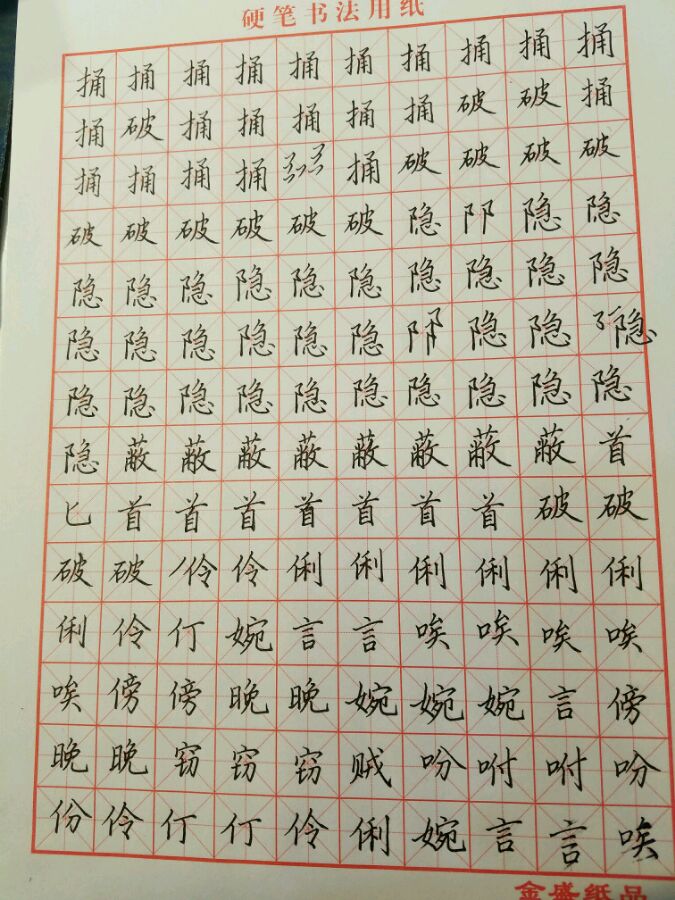 硬笔书法用纸
捅捅捅捅捅捅捅捅捅捅
捅破捅捅捅捅捅破破捅
捅捅捅捅捅破破破破
破破破破破破隐隐隐
隐隐隐隐隐隐隐隐隐隐
隐隐隐隐隐隐隐隐隐
隐隐隐隐隐隐隐隐隐隐
隐蔽蔽蔽蔽蔽蔽蔽蔽首
匕首首首首首首首破破
破破伶伶俐俐俐俐俐俐
俐伶仃婉言言唉唉唉唉
唉傍傍晚晚婉婉婉言傍
晚晚窃窃窃贼吩咐咐吩
份伶仃仃伶俐婉言言唉
金盛纸品